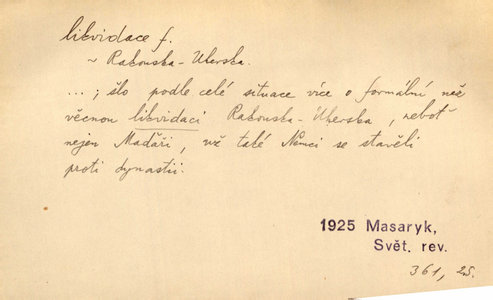 likvidace f.
~ Rakouska-Uherska.
...; šlo podle celé situace více o formální než
věcnou likvidaci Rakouska-Uherska, neboť
nejen Maďaři, už také Němci se stavěli
proti dynastii.
1925 Masaryk,
Svět. rev.
361, 25.